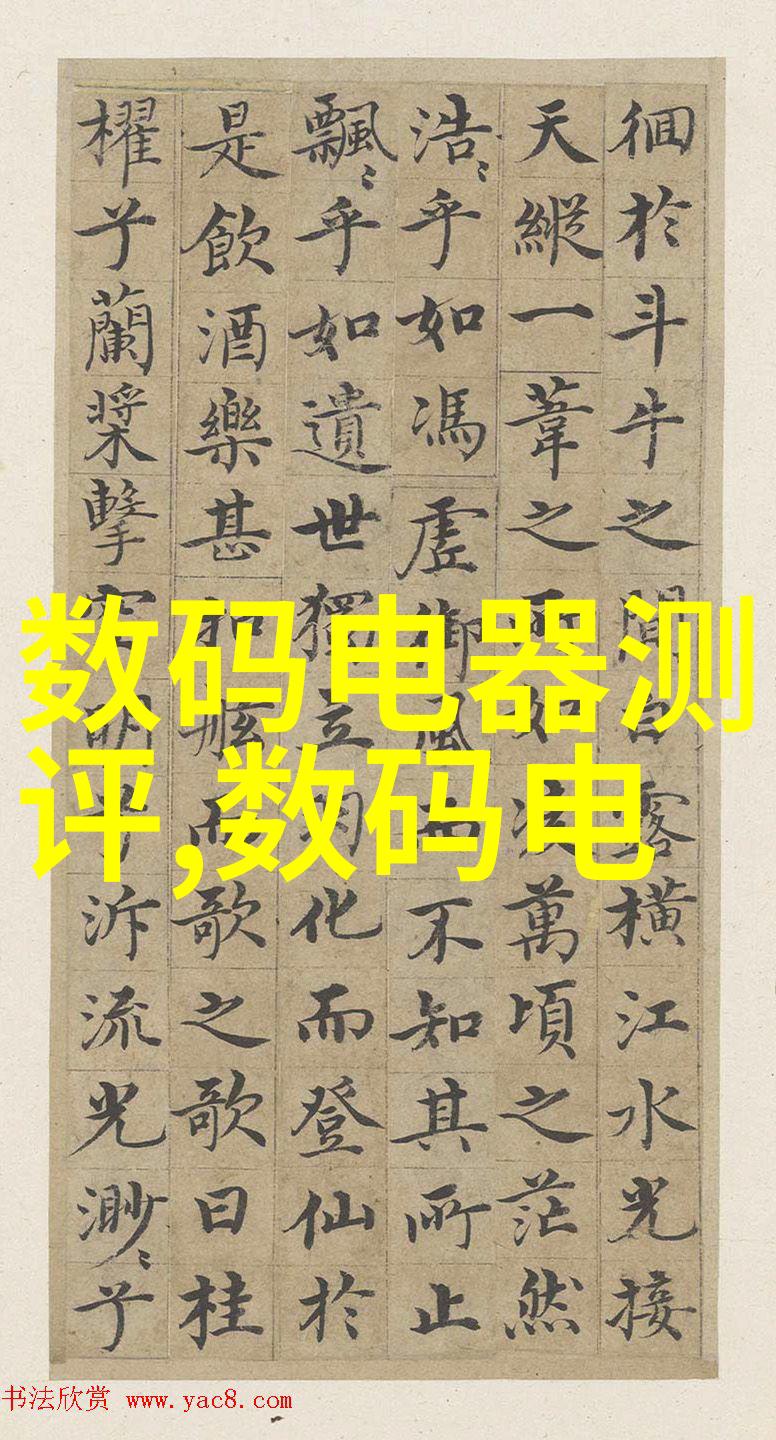 徊於斗牛之間白露橫江水光接
天縱一葦之所如凌萬頃之茫然
浩〻乎如馮虛御風而不知其所止
飄〻乎如遺世獨立羽化而登仙於
是飲酒樂甚扣舷而歌之歌曰桂
櫂兮蘭槳擊空明兮泝流光渺〻兮
数码电器测
评,数码电
书法欣赏 www.yac8.com